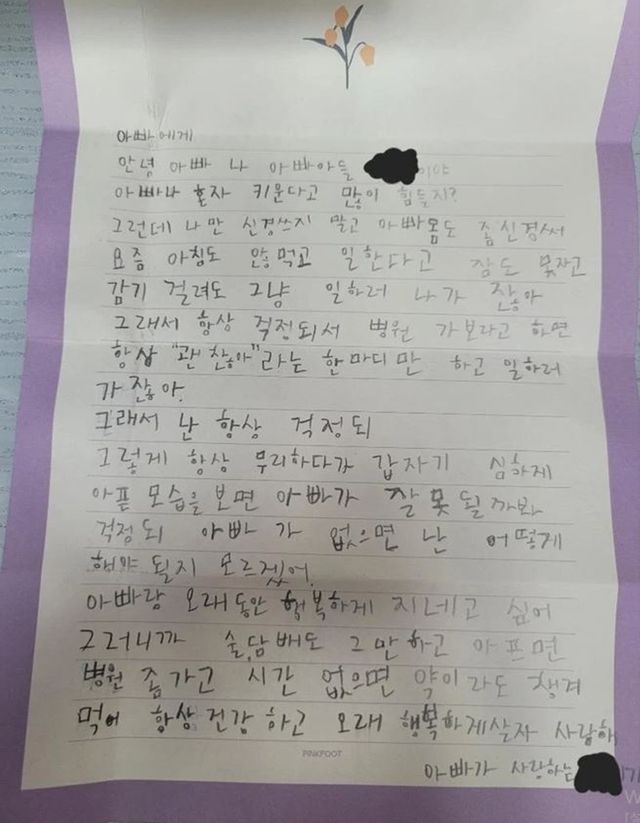 아빠에게
안녕 아빠 나 아빠아들 이야
아빠나 혼자 키운다고 많이 힘들지?
그런데 나만 신경쓰지 말고 아빠몸도 좀신경써
요즘 아침도 않먹고 일한다고 잠도 못자고
감기 걸려도 그냥 일하러 나가 잖아
그래서 항상 걱정되서 병원 가보라고 하면
항상 "괜찮아"라는 한마디만 하고 일하러
가잖아.
그래서 난 항상 걱정되
그렇게 항상 무리하다가 갑자기 심하게
아픈 모습을 보면 아빠가 잘못될까봐
걱정되 아빠가 없으면 난 어떻게
해야 될지 모르겠어.
아빠랑 오래동안 행복하게 지네고 싶어
그러니까 술,담배도 그만하고 아프면
병원 좀가고 시간 없으면 약이라도 챙겨
먹어 항상건강하고 오래 행복하게살자 사랑해
PINKFOOT
아빠가 사랑하는 가